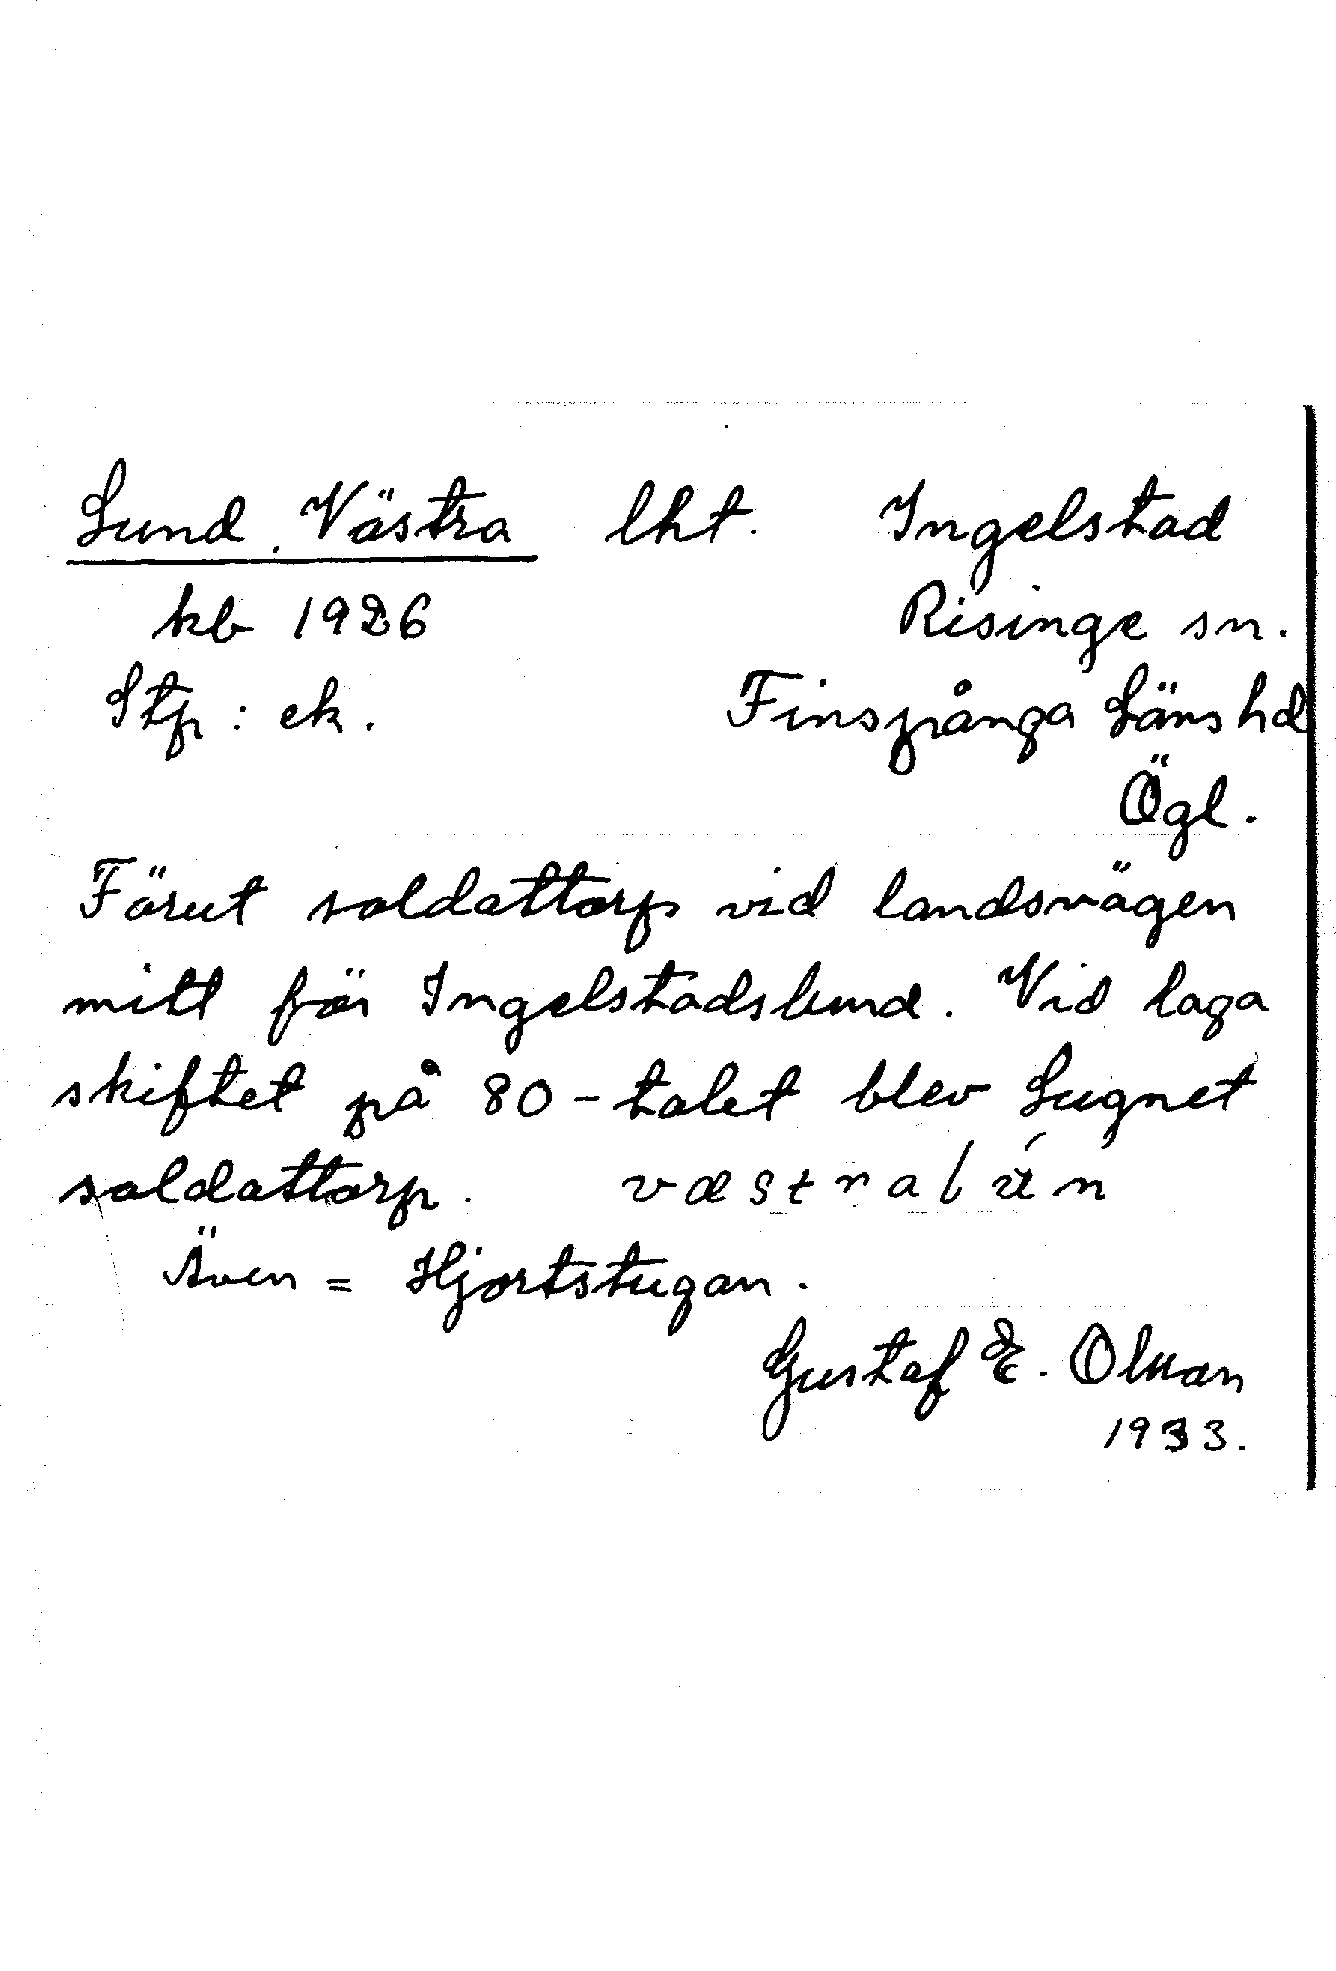 Lund, Västra lht. Ingelstad
kb 1926 Risinge sn.
Stp: ek. Finspånga Läns hd
Ögl.
Förut soldattorp vid landsvägen
mitt för Ingelstadslund. Vid laga
skiftet på 80-talet blev Lugnet
soldattorp.
Även = Hjortstugan.
Gustaf E. Olman
1933.